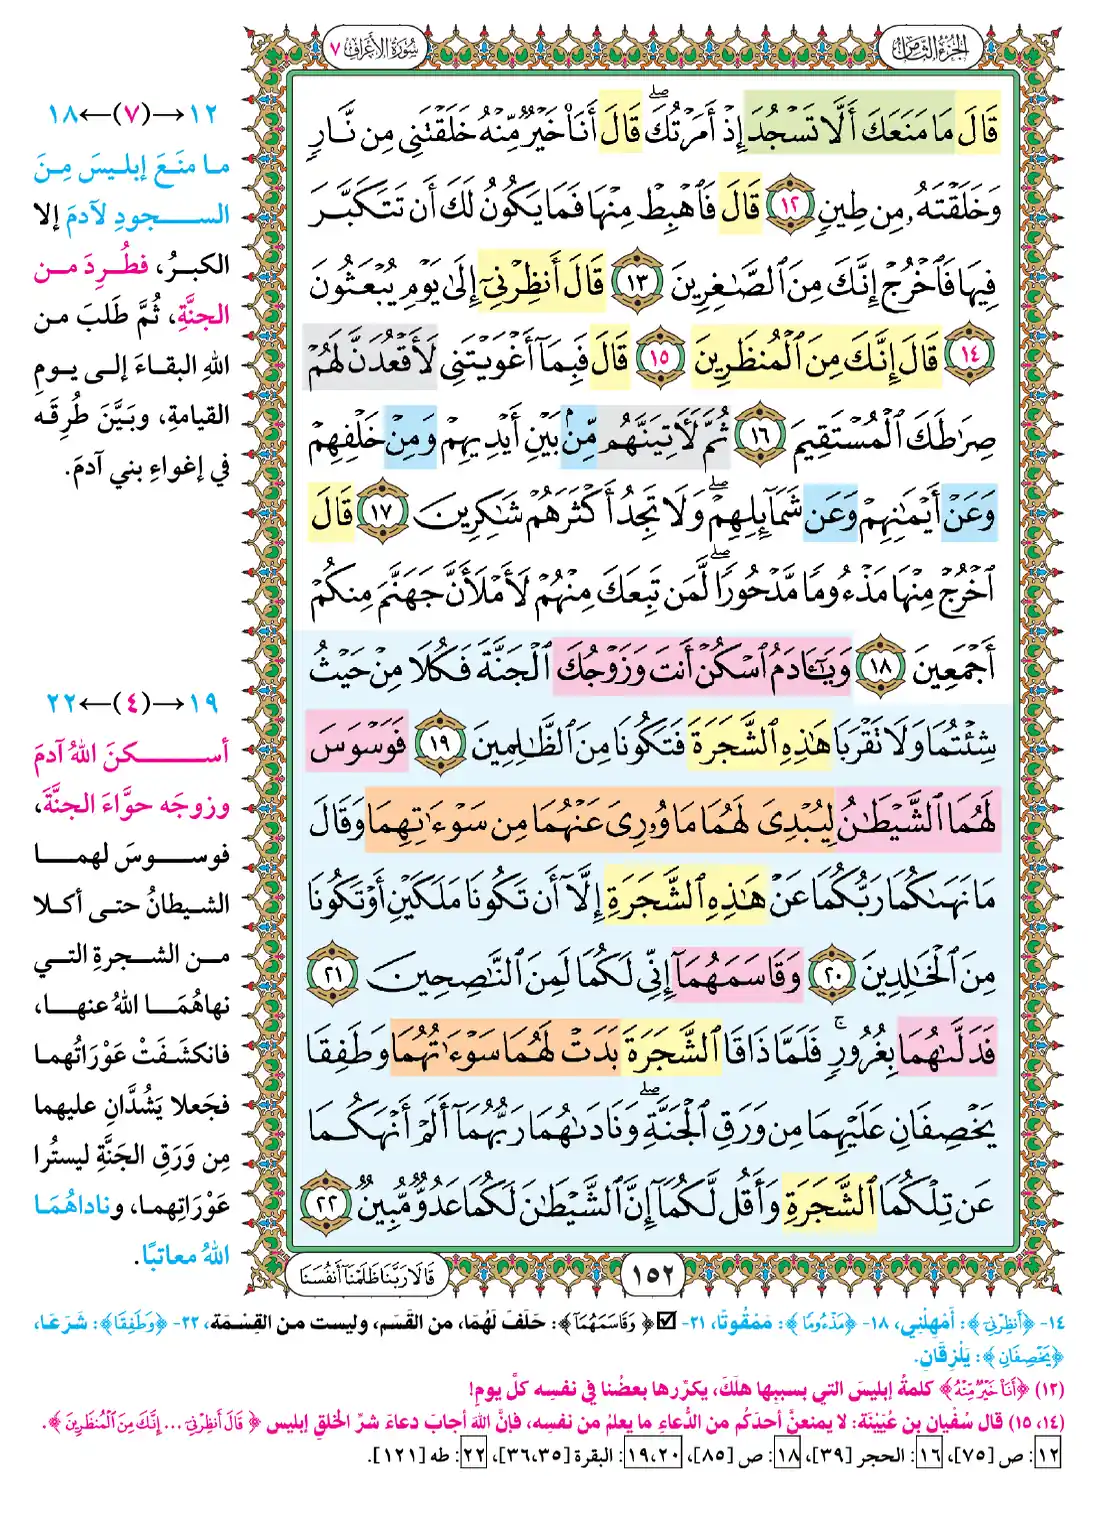 الجزء الثامن
سورة الأعراف ٧
قَالَ مَا مَنَعَكَ أَلَّا تَسْجُدَ إِذْ أَمَرْتُكَ ۖ قَالَ أَنَا۠ خَيْرٌ مِّنْهُ خَلَقْتَنِى مِن نَّارٍ
وَخَلَقْتَهُۥ مِن طِينٍ ١٢ قَالَ فَٱهْبِطْ مِنْهَا فَمَا يَكُونُ لَكَ أَن تَتَكَبَّرَ
فِيهَا فَٱخْرُجْ إِنَّكَ مِنَ ٱلصَّٰغِرِينَ ١٣ قَالَ أَنظِرْنِىٓ إِلَىٰ يَوْمِ يُبْعَثُونَ
١٤ قَالَ إِنَّكَ مِنَ ٱلْمُنظَرِينَ ١٥ قَالَ فَبِمَآ أَغْوَيْتَنِى لَأَقْعُدَنَّ لَهُمْ
صِرَٰطَكَ ٱلْمُسْتَقِيمَ ١٦ ثُمَّ لَءَاتِيَنَّهُم مِّنۢ بَيْنِ أَيْدِيهِمْ وَمِنْ خَلْفِهِمْ
وَعَنْ أَيْمَٰنِهِمْ وَعَن شَمَآئِلِهِمْ ۖ وَلَا تَجِدُ أَكْثَرَهُمْ شَٰكِرِينَ ١٧ قَالَ
ٱخْرُجْ مِنْهَا مَذْءُومًا مَّدْحُورًا ۖ لَّمَن تَبِعَكَ مِنْهُمْ لَأَمْلَأَنَّ جَهَنَّمَ مِنكُمْ
أَجْمَعِينَ ١٨ وَيَٰٓـَٔادَمُ ٱسْكُنْ أَنتَ وَزَوْجُكَ ٱلْجَنَّةَ فَكُلَا مِنْ حَيْثُ
شِئْتُمَا وَلَا تَقْرَبَا هَٰذِهِ ٱلشَّجَرَةَ فَتَكُونَا مِنَ ٱلظَّٰلِمِينَ ١٩ فَوَسْوَسَ
لَهُمَا ٱلشَّيْطَٰنُ لِيُبْدِىَ لَهُمَا مَا وُۥرِىَ عَنْهُمَا مِن سَوْءَٰتِهِمَا وَقَالَ
مَا نَهَىٰكُمَا رَبُّكُمَا عَنْ هَٰذِهِ ٱلشَّجَرَةِ إِلَّآ أَن تَكُونَا مَلَكَيْنِ أَوْ تَكُونَا
مِنَ ٱلْخَٰلِدِينَ ٢٠ وَقَاسَمَهُمَآ إِنِّى لَكُمَا لَمِنَ ٱلنَّٰصِحِينَ ٢١
فَدَلَّىٰهُمَا بِغُرُورٍ ۚ فَلَمَّا ذَاقَا ٱلشَّجَرَةَ بَدَتْ لَهُمَا سَوْءَٰتُهُمَا وَطَفِقَا
يَخْصِفَانِ عَلَيْهِمَا مِن وَرَقِ ٱلْجَنَّةِ ۖ وَنَادَىٰهُمَا رَبُّهُمَآ أَلَمْ أَنْهَكُمَا
عَن تِلْكُمَا ٱلشَّجَرَةِ وَأَقُل لَّكُمَآ إِنَّ ٱلشَّيْطَٰنَ لَكُمَا عَدُوٌّ مُّبِينٌ ٢٢
١٥٢
قَالَا رَبَّنَا ظَلَمْنَآ أَنفُسَنَا
١٢→(٧)←١٨
ما منَعَ إبليسَ مِنَ
السجودِ لآدمَ إلا
الكبرُ، فطُرِدَ من
الجنَّةِ، ثُمَّ طَلَبَ من
اللهِ البقاءَ إلى يومِ
القيامةِ، وبَيَّنَ طُرقَه
في إغواءِ بني آدمَ.
١٩→(٤)←٢٢
أسكنَ اللهُ آدمَ
وزوجَه حوَّاءَ الجنَّةَ،
فوسوسَ لهما
الشيطانُ حتى أكلا
من الشجرةِ التي
نهاهُمَا اللهُ عنها،
فانكشَفَتْ عوْرَاتُهما
فجَعلا يَشُدَّانِ عليهما
مِن وَرَقِ الجَنَّةِ ليستُرا
عَوْرَاتِهما، وناداهُمَا
اللهُ معاتبًا.
١٤- ﴿أَنظِرْنِىٓ﴾: أَمْهِلْنِي، ١٨- ﴿مَذْءُومًا﴾: مَمْقُوتًا، ٢١- ☑ ﴿وَقَاسَمَهُمَآ﴾: حَلَفَ لَهُمَا، من القَسَم، وليست من القِسْمَة، ٢٢- ﴿وَطَفِقَا﴾: شَرَعَا،
﴿يَخْصِفَانِ﴾: يَلْزِقَانِ.
(١٢) ﴿أَنَا۠ خَيْرٌ مِّنْهُ﴾ كلمةُ إبليسَ التي بسببِها هلَكَ، يكرِّرها بعضُنا في نفسِه كلَّ يومٍ!
(١٤، ١٥) قال سُفْيان بن عُيَيْنَة: لا يمنعنَّ أحدَكُم من الدُّعاءِ ما يعلمُ من نفسِه، فإنَّ اللهَ أجابَ دعاءَ شرِّ الخلقِ إبليس ﴿قَالَ أَنظِرْنِىٓ ... إِنَّكَ مِنَ ٱلْمُنظَرِينَ﴾.
١٢: ص [٧٥]، ١٦: الحجر [٣٩]، ١٨: ص [٨٥]، ١٩،٢٠: البقرة [٣٦،٣٥]، ٢٢: طه [١٢١].